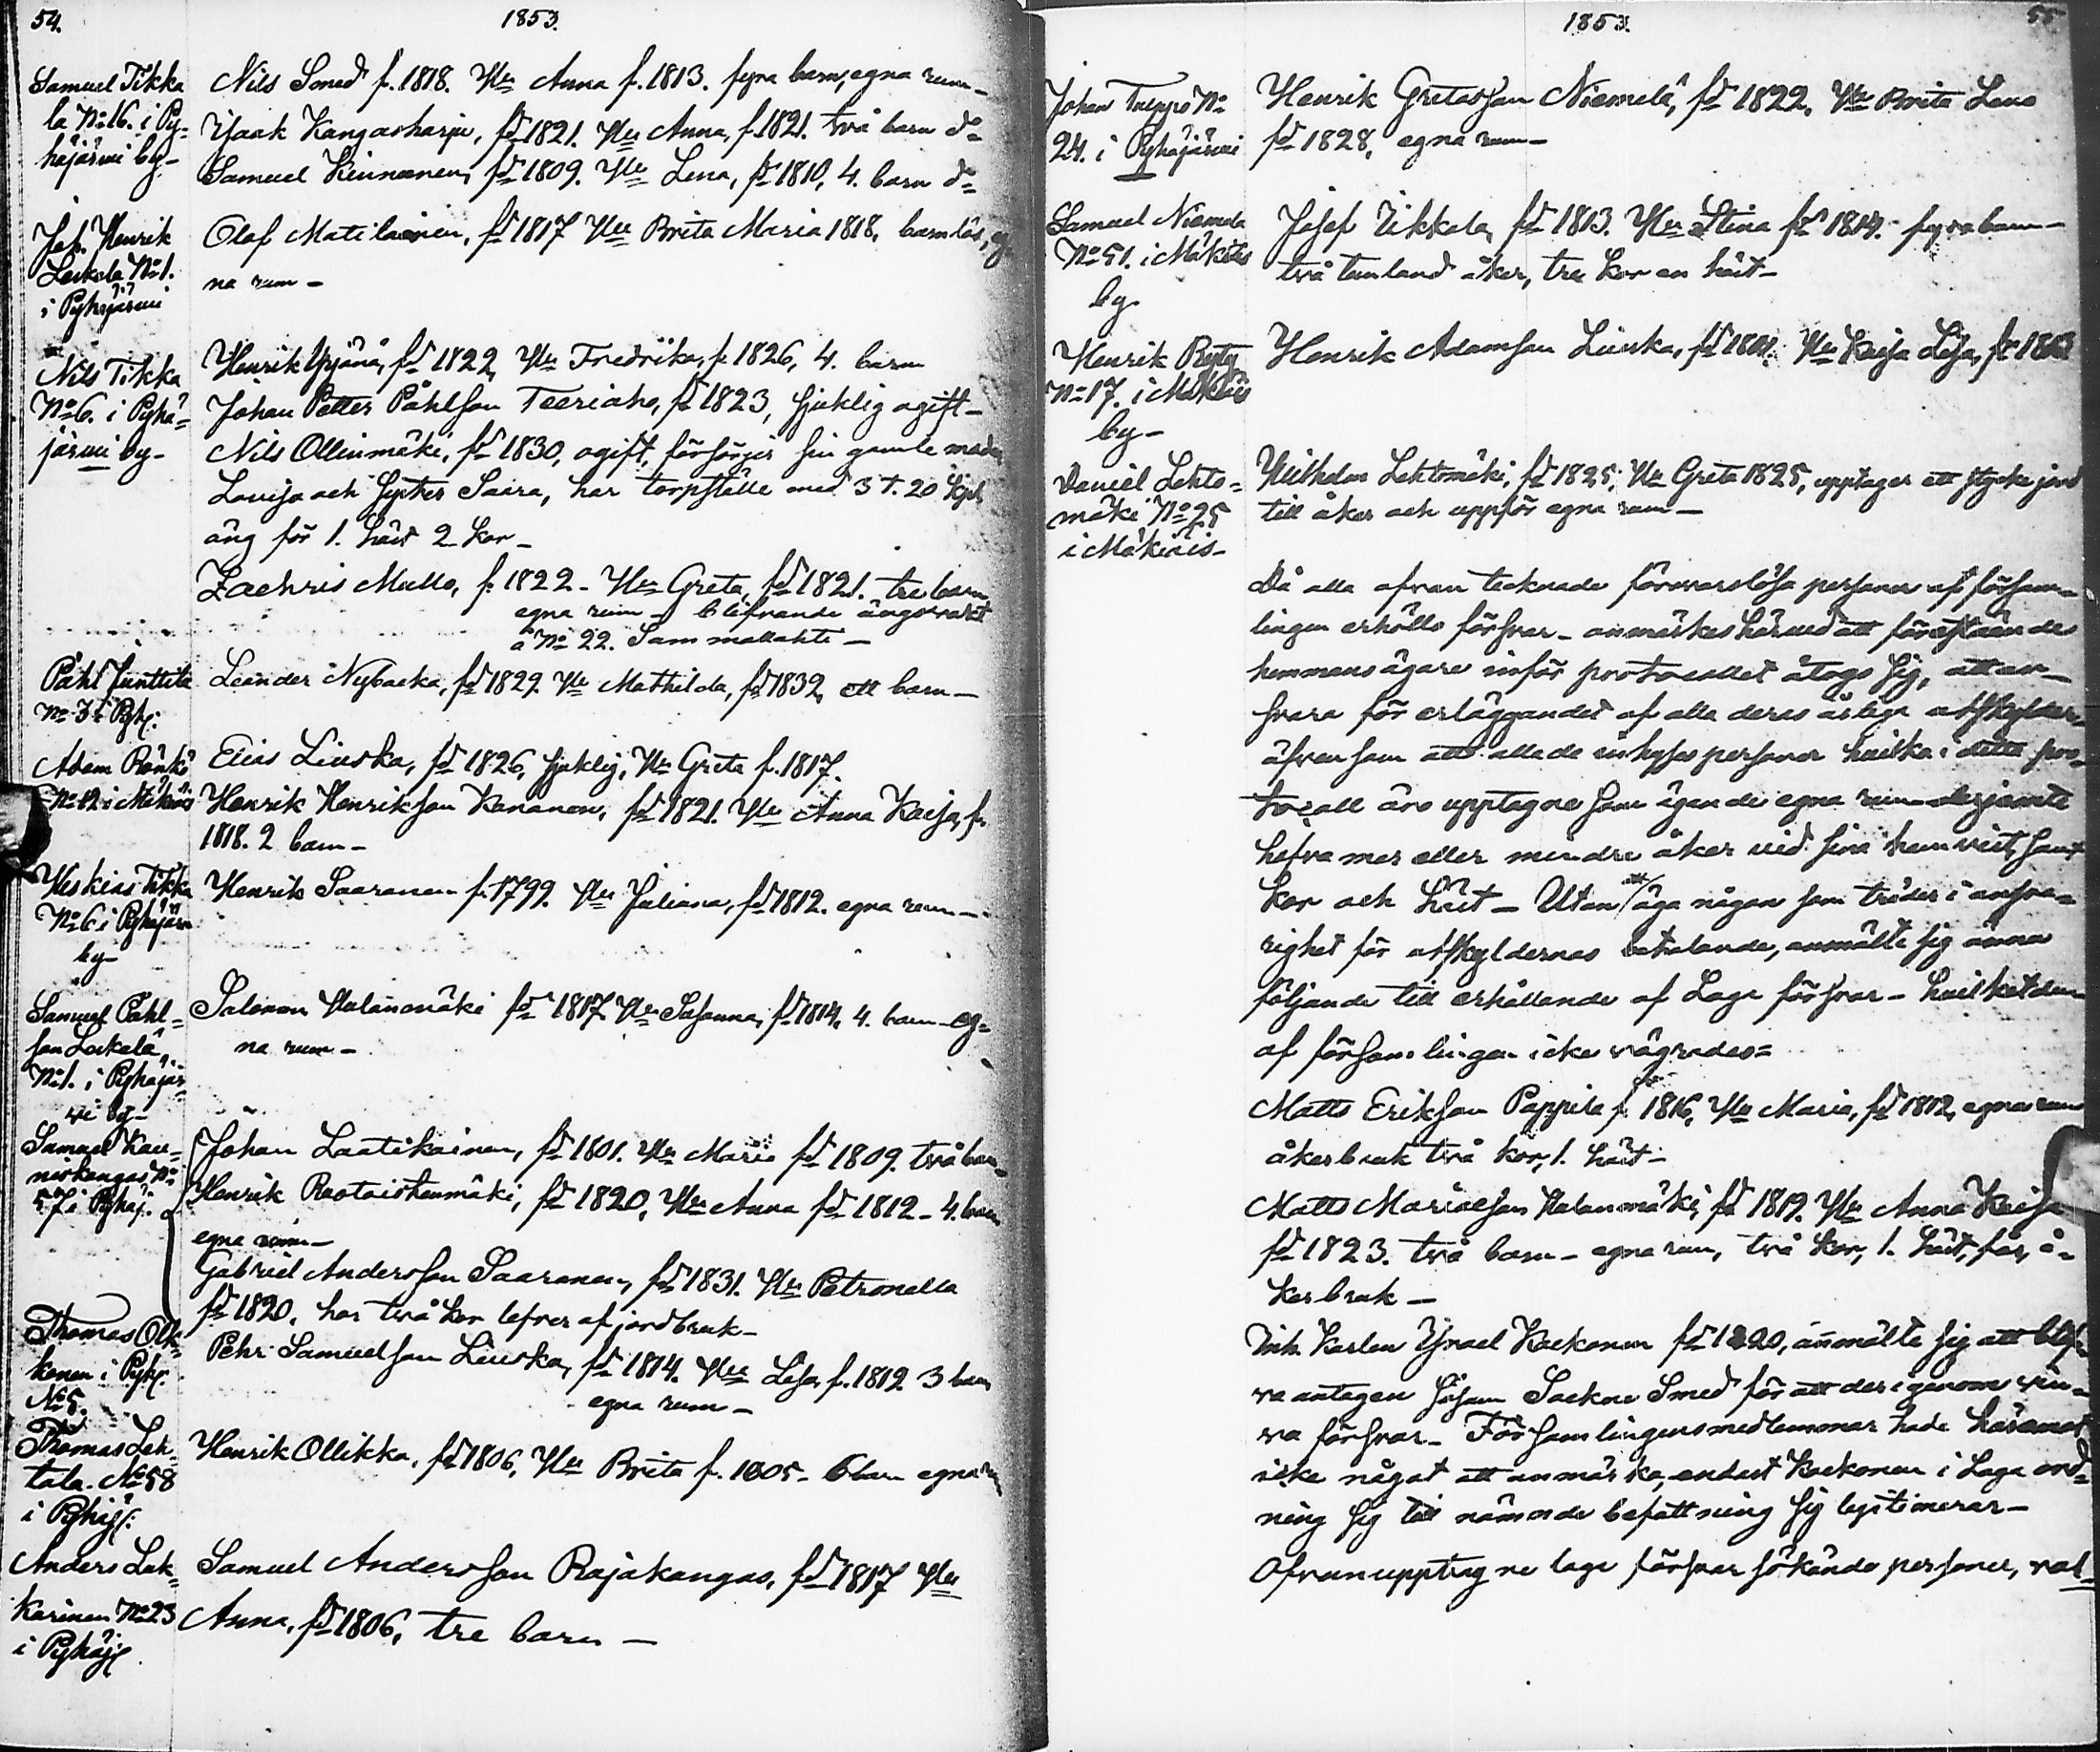 54.
1853.
Samuel Tikka
la No 16. i Py-
häjärvi by-
Nils Smed f. 1818. Hu Anna f. 1813. fyra barn, egna rum-
Isaak Kangasharju, fd 1821. Hu Anna, f. 1821. två barn do
Samuel Kinnunen, fd 1809. Hu Lena, fd 1810, 4. barn do
Joh. Henrik
Leskelä No 1.
i Pyhäjärvi
Olof Matilainen, fd 1817 Hu Brita Maria 1818, barnlös, eg
na rum -
Nils Tikka
No 6. i Pyhä-
järvi by-
Henrik Ypjänä, fd 1822, Hu Fredrika, f. 1826, 4. barn
Johan Petter Påhlson Teeriaho, fd 1823, sjuklig ogift-
Nils Ollinmäki, fd 1830, ogift, försörjer sin gamla moder
Lovisa och syster Saara, har torpställe med 3 t. 20 kpl.
äng för 1. häst 2 kor-
Zachris Mullo, f. 1822 - Hu Greta, fd 1821. tre barn
egna rum - blifvande
å No 22. Sammallahti -
Påhl Junttila
No 3 i Pyhj:
Leander Nybacka, fd 1829. Hu Mathilda, fd 1832, ett barn-
Adam Rönkö
No 12 i Mäkiäis
Elias Liuska, fd 1826, sjuklig, Hu Greta f. 1817.
Henrik Henrikson Kananen, fd 1821. Hu Anna Kaisa, f.
1818. 2 barn-
Heskias Tikka
No 6 i Pyhäjärvi
by-
Henrik Saaranen f. 1799. Hu Juliana, fd 1812. egna rum-
Samuel Påhl-
son Leskelä,
No 1. i Pyhäjär-
vi by-
Salomon Halanmäki fd 1817 Hu Susanna, fd 1814, 4. barn eg-
na rum -
Samuel Kau-
niskangas, No
57 i Pyhäj.
Johan Laatikainen, fd 1801. Hu Maria fd 1809. två barn
Henrik Raotaistenmäki, fd 1820, Hu Anna fd 1812 - 4. barn
egna rum-
Gabriel Andersson Saaranen, fd 1831. Hu Petronella
fd 1820. har två kor lefver af jordbruk-
Thomas Olk-
konen i Pyhj.
No 5.
Pehr Samuelson Liuska, fd 1814. Hu Lisa, f. 1812 3 barn
egna rum-
Thomas Leh-
tola. No 58
i Pyhäj:
Henrik Ollikka, fd 1806, Hu Brita f. 1805 - 6 barn egna rum
Anders Luk-
karinen No 23
i Pyhäj
Samuel Andersson Rajakangas, fd 1817 Hu
Anna, fd 1806, tre barn -
1853.
55
Johan Tuppo No
24. i Pyhäjärvi
Henrik Gretasson Niemelä, fd 1822. Hu Brita Lena
fd 1828, egna rum-
Samuel Niemelä
No 51. i Mäkiäis
by.
Josef Tikkala, fd 1813. Hu Stina fd 1814. fyra barn -
två tunland åker, tre kor en häst-
Henrik Ryty
No 17. i Mäkiäis
by-
Henrik Adamson Liuska, fd 1801. Hu Kaisa Lisa, fd
Daniel Lehto-
mäki No 25
i Mäkiäis-
Wilhelm Lehtomäki, fd 1825, Hu Greta 1825, upptager ett stycke jord
till åker och uppför egna rum-
Då alla ofvan tecknade försvarslösa personer af försam-
lingen erhållo försvar - anmärkes härmed att föreståendes
hemmansägare inför protocollet åtogo sig, att an-
svara för erläggandet af alla deras årliga utskylder
äfvensom att alla de inhyses personer hvilka i detta pro-
tocoll äro upptagne som ägande egna rum derjämte
hafva mer eller mindre åker vid sina hemvist, samt
kor och häst - Utan att äga någon som träder i ansva-
righet för utskyldernas betalande, anmälte sig ännu
följande till erhållande af Laga försvar - hvilket dem
af församlingen icke vägrades=
Matts Erikson Pappila f. 1816, Hu Maria, fd 1812, egna rum
åkerbruk två kor, 1. häst-
Matts Mariæson Halanmäki, fd 1819. Hu Anna Kaisa
fd 1823. två barn - egna rum, två kor, 1. häst, får, å-
kerbruk -
Inh. Karlen Israel Kaekonen fd 1820, anmälte sig att blif-
va antagen såsom Sockne Smed för att derigenom vin-
na försvar - Församlingensmedlemmar hade häremot
icke något att anmärka, endast Kaekonen i Laga ord-
ning sig till nämnde befattning sig legitimerar-
Ofvanupptagne laga försvar sökande personer, val-